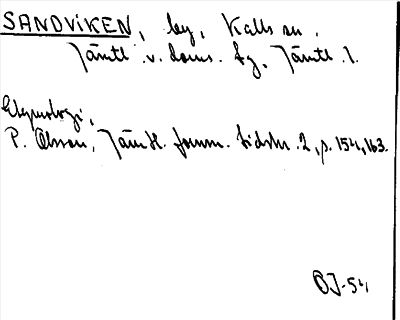 SANDVIKEN, by, Kalls sn.
Jämtl. v. doms. fg, Jämtl. l.
Etymologi,
P. Olsson, Jämtl. fornm. tidskr. 2, p. 154, 163.
BJ-54